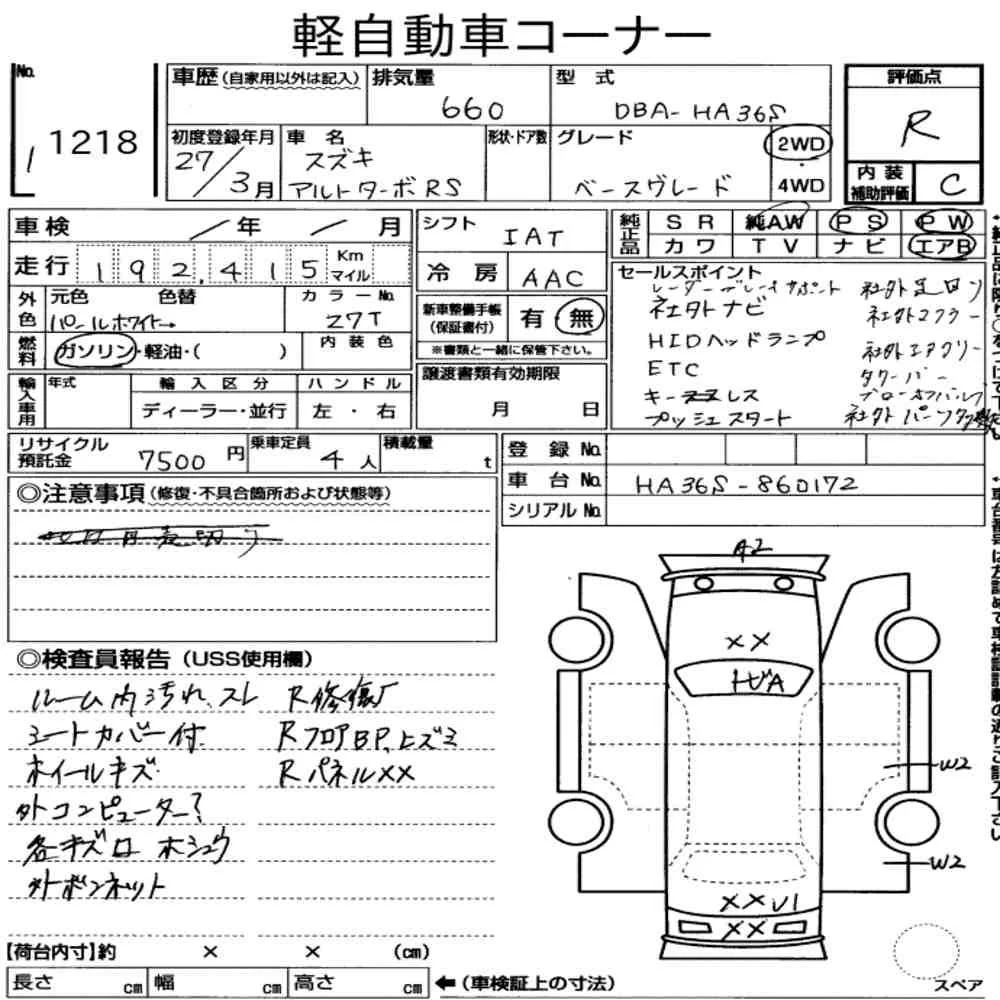 軽自動車コーナー
No.
1 1218
車歴(自家用以外は記入)
排気量
660
型式
DBA-HA36S
評価点
R
初度登録年月
27/3月
車名
スズキ
アルトターボRS
形状・ドア数
グレード
ベースグレード
2WD
・
4WD
内装
補助評価
C
車検 /年 /月
走行 192,415 Km
マイル
シフト
IAT
冷房 AAC
純正品
SR 純AW PS PW
カワ TV ナビ エアB
外色
元色 色替
パールホワイト→
カラーNo.
Z7T
燃料
ガソリン・軽油・( )
内装色
新車整備手帳
(保証書付)
有・無
※書類と一緒に保管下さい。
セールスポイント
レーダーブレーキサポート
社外ナビ
HIDヘッドランプ
ETC
キーレス
プッシュスタート
社外マフラー
社外エアクリ
タワーバー
ブローオフバルブ
社外パーツ
輸入車用
年式
輸入区分
ディーラー・並行
ハンドル
左・右
譲渡書類有効期限
月 日
リサイクル
預託金
7500円
乗車定員
4人
積載量
t
登録No.
車台No. HA36S-860172
シリアルNo.
◎注意事項(修復・不具合箇所および状態等)
◎検査員報告(USS使用欄)
ルーム内汚れ、スレ
シートカバー付
ホイールキズ
外コンピューター?
各キズロ ホシュウ
外ボンネット
R修復
RフロアBP、ヒズミ
Rパネル××
A2
××
トビA
W2
W2
××U1
××
【荷台内寸】約 × × (cm)
長さ cm 幅 cm 高さ cm ←(車検証上の寸法)
スペア